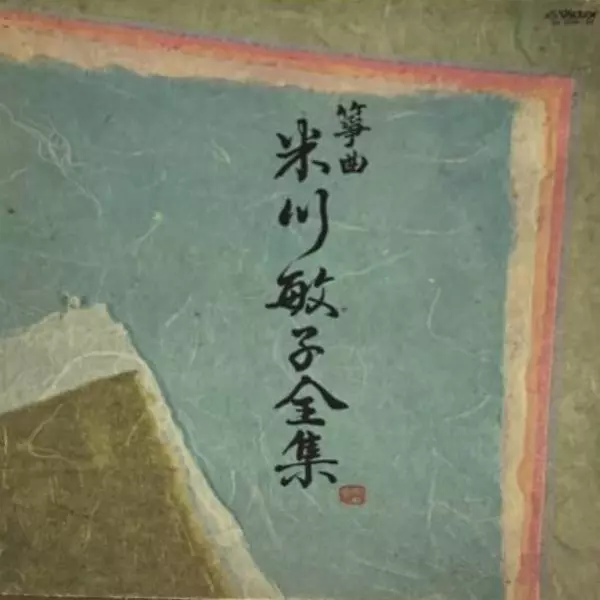 箏曲
米川敏子全集
Victor